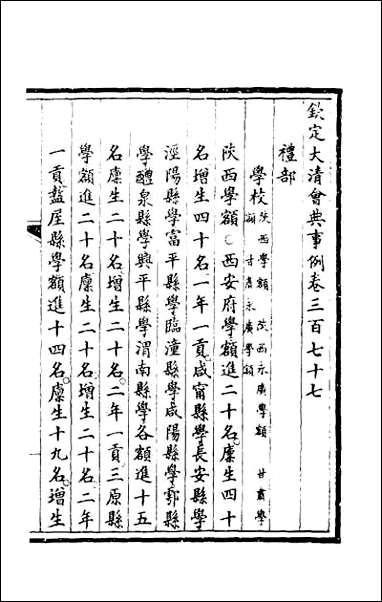 欽定大清會典事例卷三百七十七
禮部
學校陝西學額 陝西永廣學額 甘肅學
額 甘肅永廣學額
陝西學額○西安府學額進二十名廩生四十
名增生四十名一年一貢咸甯縣學長安縣學
涇陽縣學富平縣學臨潼縣學咸陽縣學鄠縣
學醴泉縣學興平縣學渭南縣學各額進十五
名廩生二十名增生二十名二年一貢三原縣
學額進二十名廩生二十名增生二十名二年
一貢盩厔縣學額進十四名廩生十九名增生